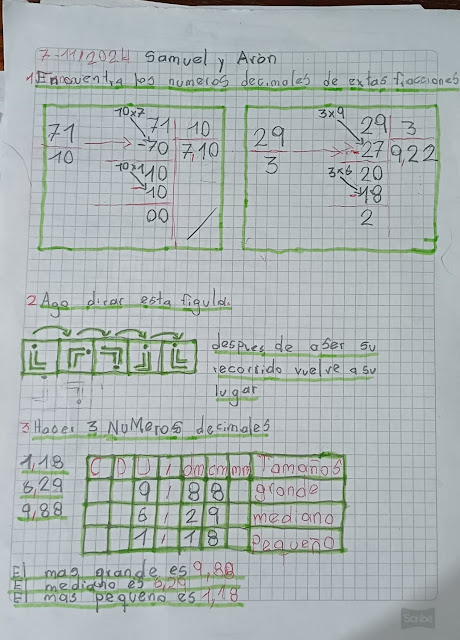 7-11/2024 Samuel y Arón
1 Encuentra los numeros decimales de extas fracciones
71 10x7 71 10
10 -70 7,10
10x1 10
-10
00
29 3x9 29 3
3 -27 9,22
20
3x6 -18
2
2 Ago dirar esta figula.
despues de aser su
recorrido vuelve a su
lugar
3 Haser 3 NuMeros decimales
1,18
6,29
9,88
C D U , dm cm mm Tamaños
9 , 8 8 grande
6 , 2 9 mediano
1 , 1 8 Pequeño
El mas grande es 9,88
El mediano es 6,29
El mas pequeño es 1,18
Scribe